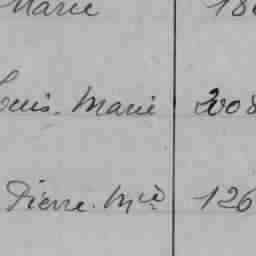 Marie 18
Louis-Marie 2008
Pierre-Mie 126